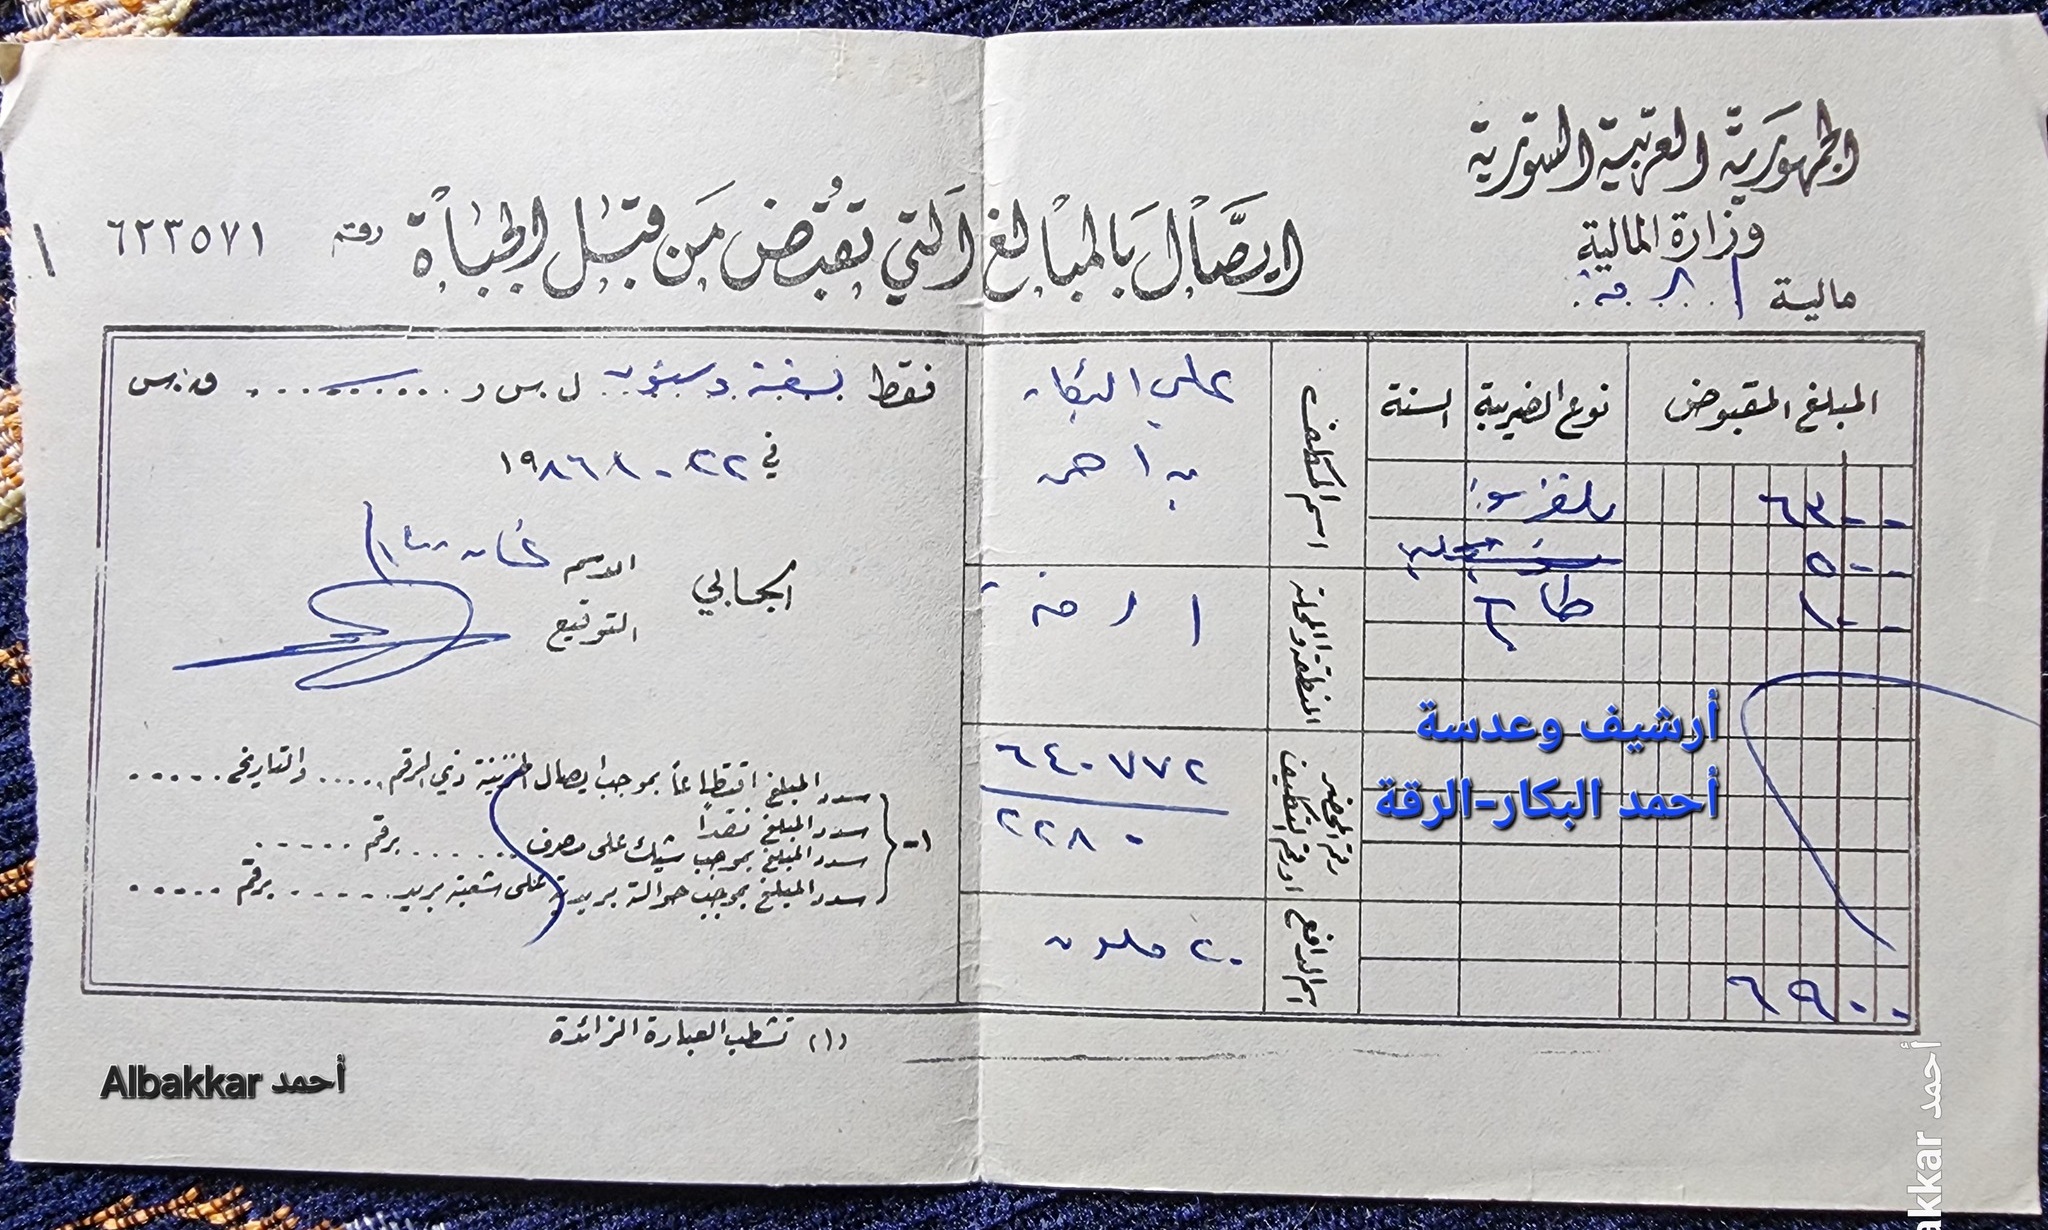 الجمهورية العربية السورية
وزارة المالية
مالية الرقة
ايصال بالمبالغ التي تقبض من قبل الجباة
رقم ٦٢٣٥٧١
المبلغ المقبوض
نوع الضريبة
السنة
٦٣٠٠ تلفزيون
٥٠٠
١٠٠ طابع
٦٩٠٠
اسم المكلف
علي البكار
بن احمد
المنطقة والمحلة
الرقة
رقم المحضر او رقم التكليف
٦٤٠٧٧٢
٢٢٨٠
اسم الدافع
٢٠ ملون
فقط تسعة وستون ل.س و ......... ق.س
في ٢٢
١٩٨٦
الجابي
الاسم
التوقيع
١- سدد المبلغ اقتطاعاً بموجب ايصال الخزينة ذي الرقم ..... والتاريخ .....
سدد المبلغ نقداً
سدد المبلغ بموجب شيك على مصرف ...... برقم .....
سدد المبلغ بموجب حوالة بريدية على شعبة بريد ...... برقم .....
(١) تشطب العبارة الزائدة
أرشيف وعدسة
أحمد البكار-الرقة
أحمد Albakkar
أحمد akkar